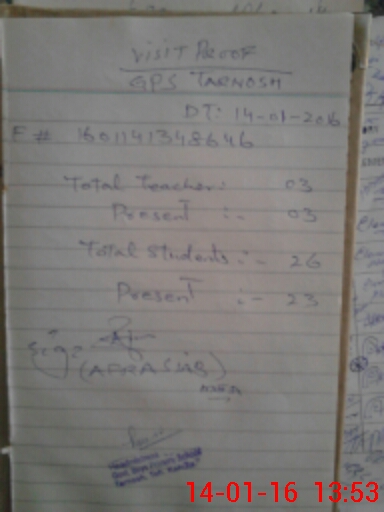 VISIT PROOF
GPS TARNOSH
DT: 14-01-2016
F # 1601141348646
Total Teacher: 03
Present :- 03
Total Students :- 26
Present :- 23
Sig:
(AFRASIAB)
14-01-16 13:53